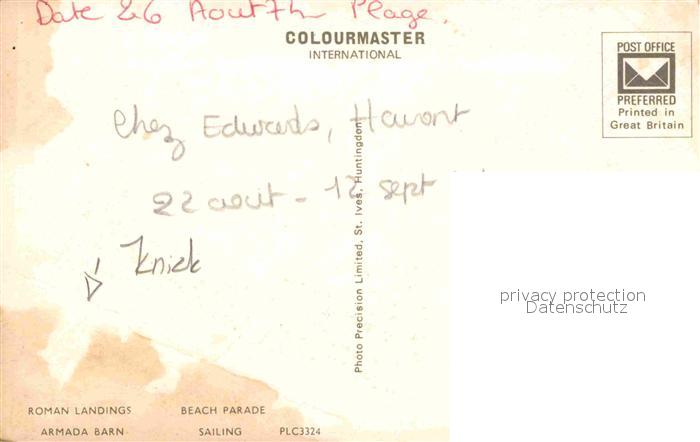 Date 26 Aout 7h Plage.
COLOURMASTER
INTERNATIONAL
POST OFFICE
PREFERRED
Printed in
Great Britain
Chez Edwards, Havant
22 aout - 12 sept
Knick
Photo Precision Limited, St. Ives, Huntingdon
privacy protection
Datenschutz
ROMAN LANDINGS BEACH PARADE
ARMADA BARN SAILING PLC3324